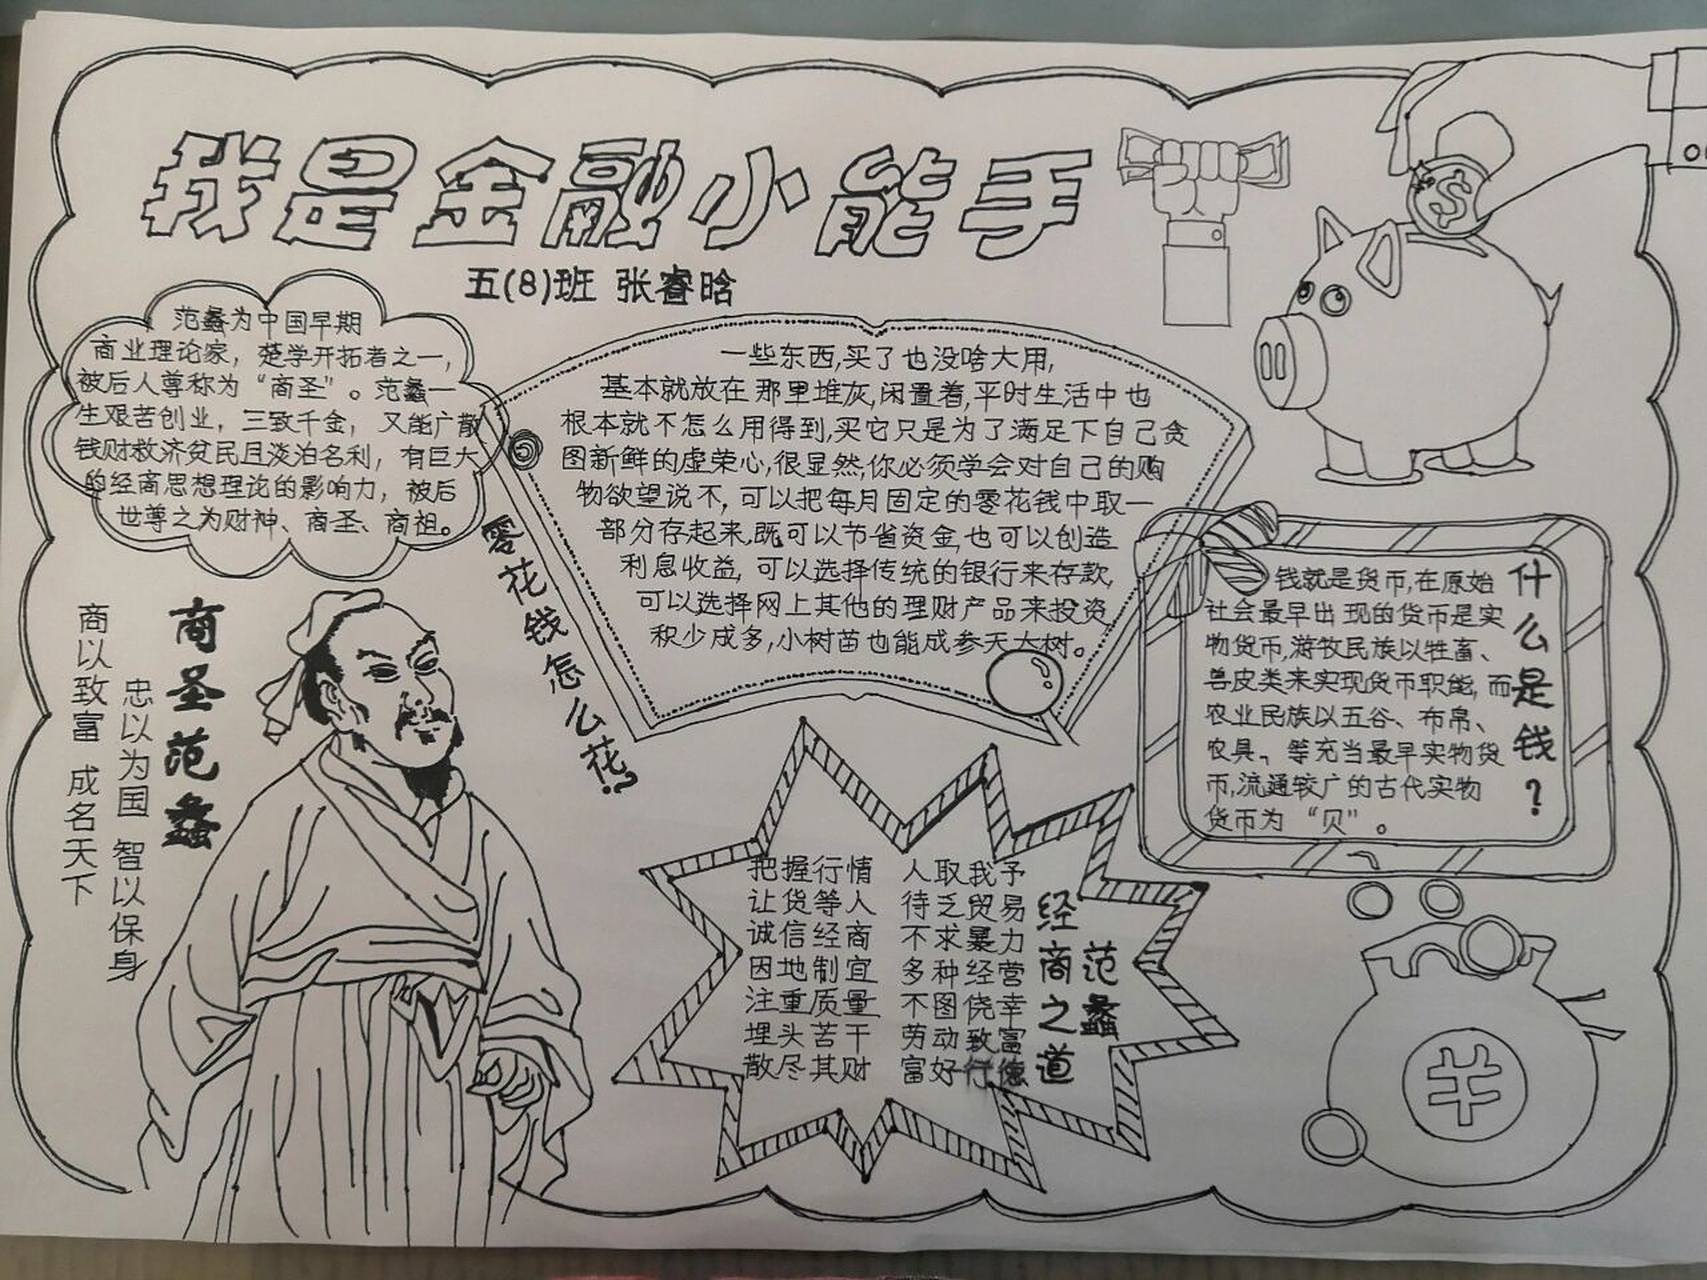 我是金融小能手
五(8)班 张睿晗
范蠡为中国早期
商业理论家，楚学开拓者之一，
被后人尊称为“商圣”。范蠡一
生艰苦创业，三致千金，又能广散
钱财救济贫民且淡泊名利，有巨大
的经商思想理论的影响力，被后
世尊之为财神、商圣、商祖。
商圣范蠡
忠以为国 智以保身
商以致富 成名天下
零花钱怎么花?
一些东西,买了也没啥大用,
基本就放在那里堆灰,闲置着,平时生活中也
根本就不怎么用得到,买它只是为了满足下自己贪
图新鲜的虚荣心,很显然,你必须学会对自己的购
物欲望说不,可以把每月固定的零花钱中取一
部分存起来,既可以节省资金,也可以创造
利息收益,可以选择传统的银行来存款,
可以选择网上其他的理财产品来投资,
积少成多,小树苗也能成参天大树。
什么是钱?
钱就是货币,在原始
社会最早出现的货币是实
物货币,游牧民族以牲畜、
兽皮类来实现货币职能,而
农业民族以五谷、布帛、
农具、等充当最早实物货
币,流通较广的古代实物
货币为“贝”。
范蠡
经商之道
把握行情 人取我予
让货等人 待乏贸易
诚信经商 不求暴力
因地制宜 多种经营
注重质量 不图侥幸
埋头苦干 劳动致富
散尽其财 富好行德
$